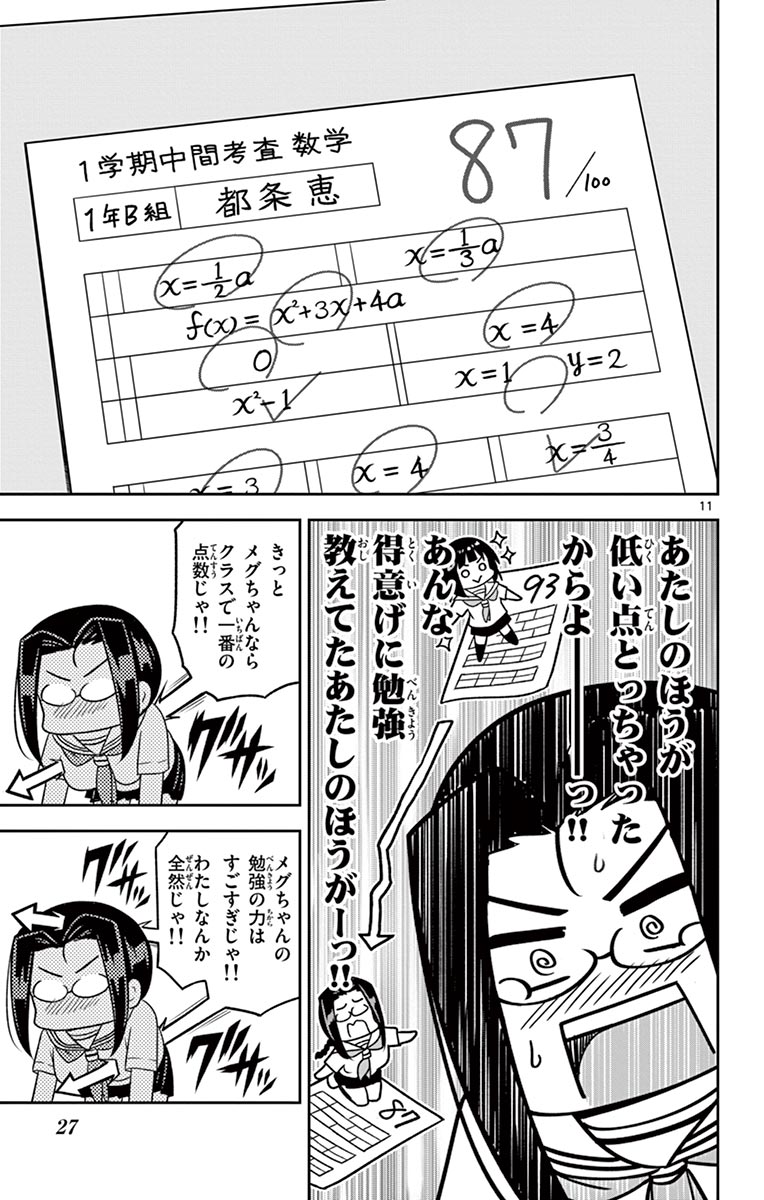 1学期中間考査 数学
87/100
1年B組 都条 恵
x=1/2a
x=1/3a
f(x)= x²+3x+4a
0
x=4
x²-1
x=1 y=2
x=3
x=4
x=3/4
11
あたしのほうが
低い点とっちゃった
からよーーーっ!!
あんな
得意げに勉強
教えてたあたしのほうがーっ!!
93
87
きっと
メグちゃんなら
クラスで一番の
点数じゃ!!
グサッ
メグちゃんの
勉強の力は
すごすぎじゃ!!
わたしなんか
全然じゃ!!
グサッ
グサッ
27